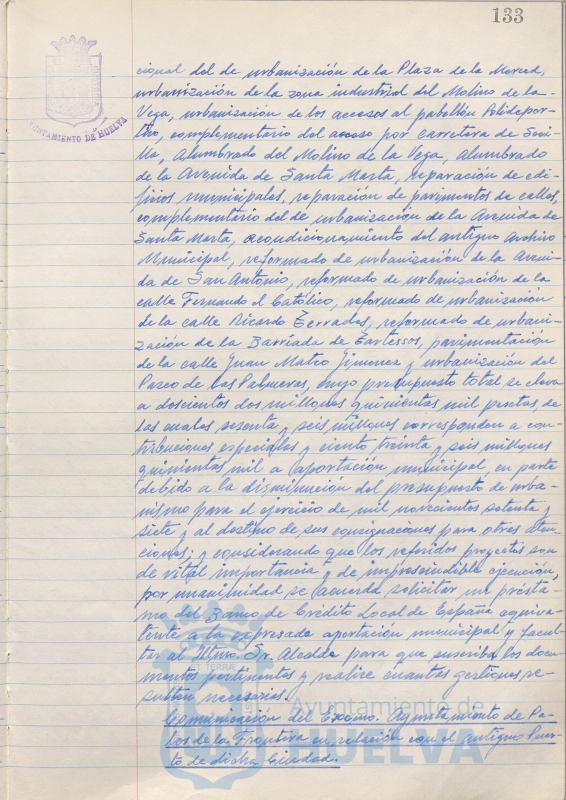 133
AYUNTAMIENTO DE HUELVA
cional del de urbanización de la Plaza de la Merced,
urbanización de la zona industrial del Molino de la
Vega, urbanización de los accesos al pabellón Polidepor-
tivo, complementario del acceso por carretera de Sevi
lla, Alumbrado del Molino de la Vega, Alumbrado
de la Avenida de Santa Marta, reparación de edi-
ficios municipales, reparación de pavimentos de calles,
complementario del de urbanización de la Avenida de
Santa Marta, acondicionamiento del antiguo Archivo
Municipal, reformado de urbanización de la Aveni-
da de San Antonio, reformado de urbanización de la
calle Fernando el Católico, reformado de urbanización
de la calle Ricardo Terrades, reformado de urbani-
zación de la Barriada de Tartessos, pavimentación
de la calle Juan Mateo Jimenez y urbanización del
Paseo de las Palmeras, cuyo presupuesto total se eleva
a doscientos dos millones quinientas mil pesetas, de
las cuales sesenta y seis millones corresponden a con-
tribuciones especiales y ciento treinta y seis millones
quinientas mil a aportación municipal, en parte
debido a la disminución del presupuesto de urba-
nismo para el ejercicio de mil novecientos setenta y
siete y al destino de sus consignaciones para otras aten-
ciones; y considerando que los referidos proyectos son
de vital importancia y de imprescindible ejecución,
por unanimidad se acuerda solicitar un présta-
mo del Banco de Crédito Local de España equiva-
lente a la expresada aportación municipal y facul-
tar al Iltmo. Sr. Alcalde para que suscriba los docu-
mentos pertinentes y realice cuantas gestiones re-
sulten necesarias.
Comunicación del Excmo. Ayuntamiento de Pa-
los de la Frontera en relación con el antiguo Puer-
to de dicha Ciudad.
Ayuntamiento de
HUELVA